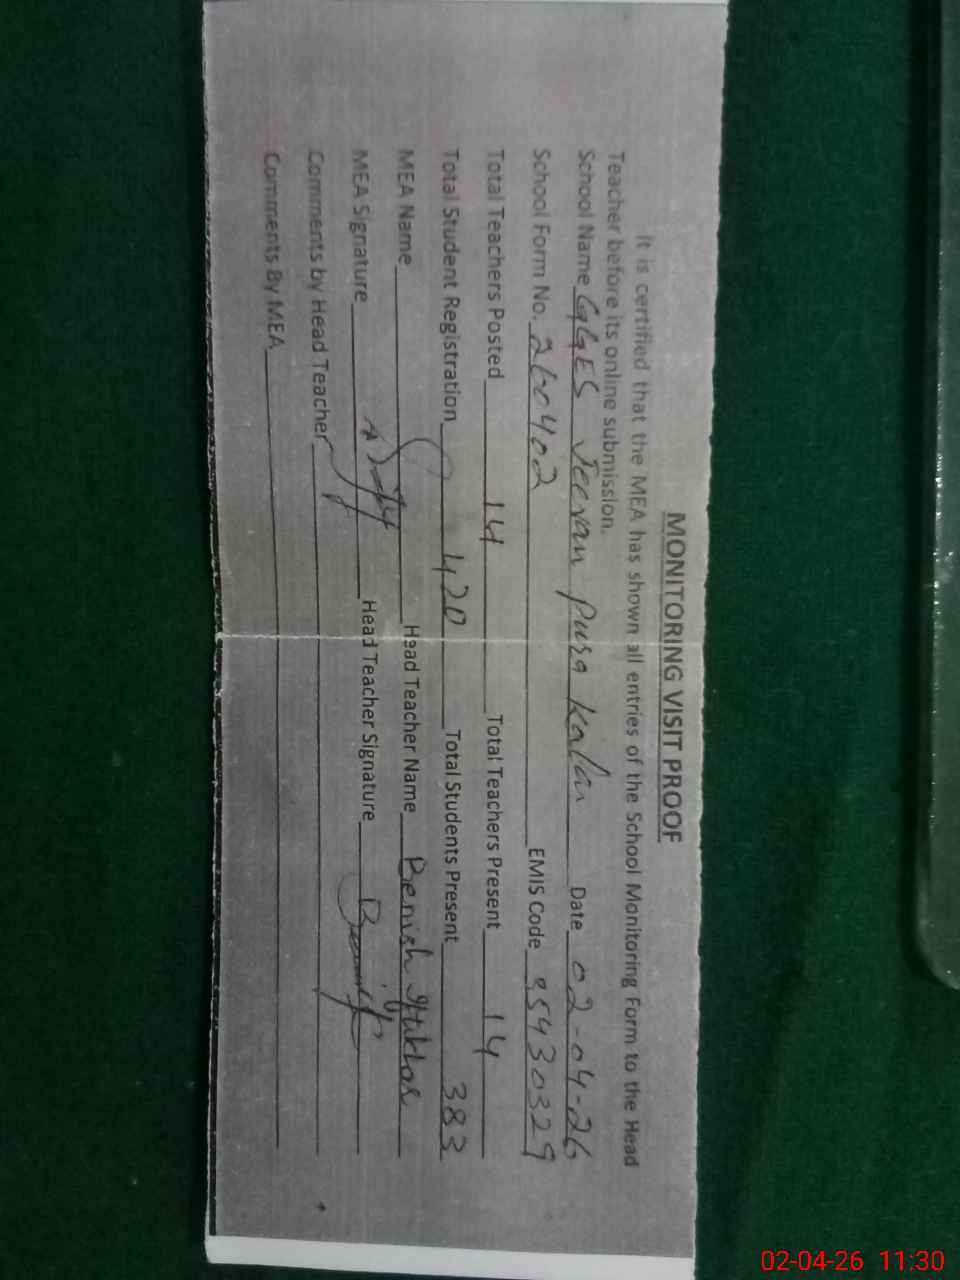 MONITORING VISIT PROOF
It is certified that the MEA has shown all entries of the School Monitoring Form to the Head
Teacher before its online submission.
School Name GGES Jeevan Pura Kalan Date 02-04-26
School Form No. 260402 EMIS Code 35430329
Total Teachers Posted 14 Total Teachers Present 14
Total Student Registration 420 Total Students Present 383
MEA Name Head Teacher Name Benish Iftikhar
MEA Signature Head Teacher Signature
Comments by Head Teacher
Comments By MEA
02-04-26 11:30